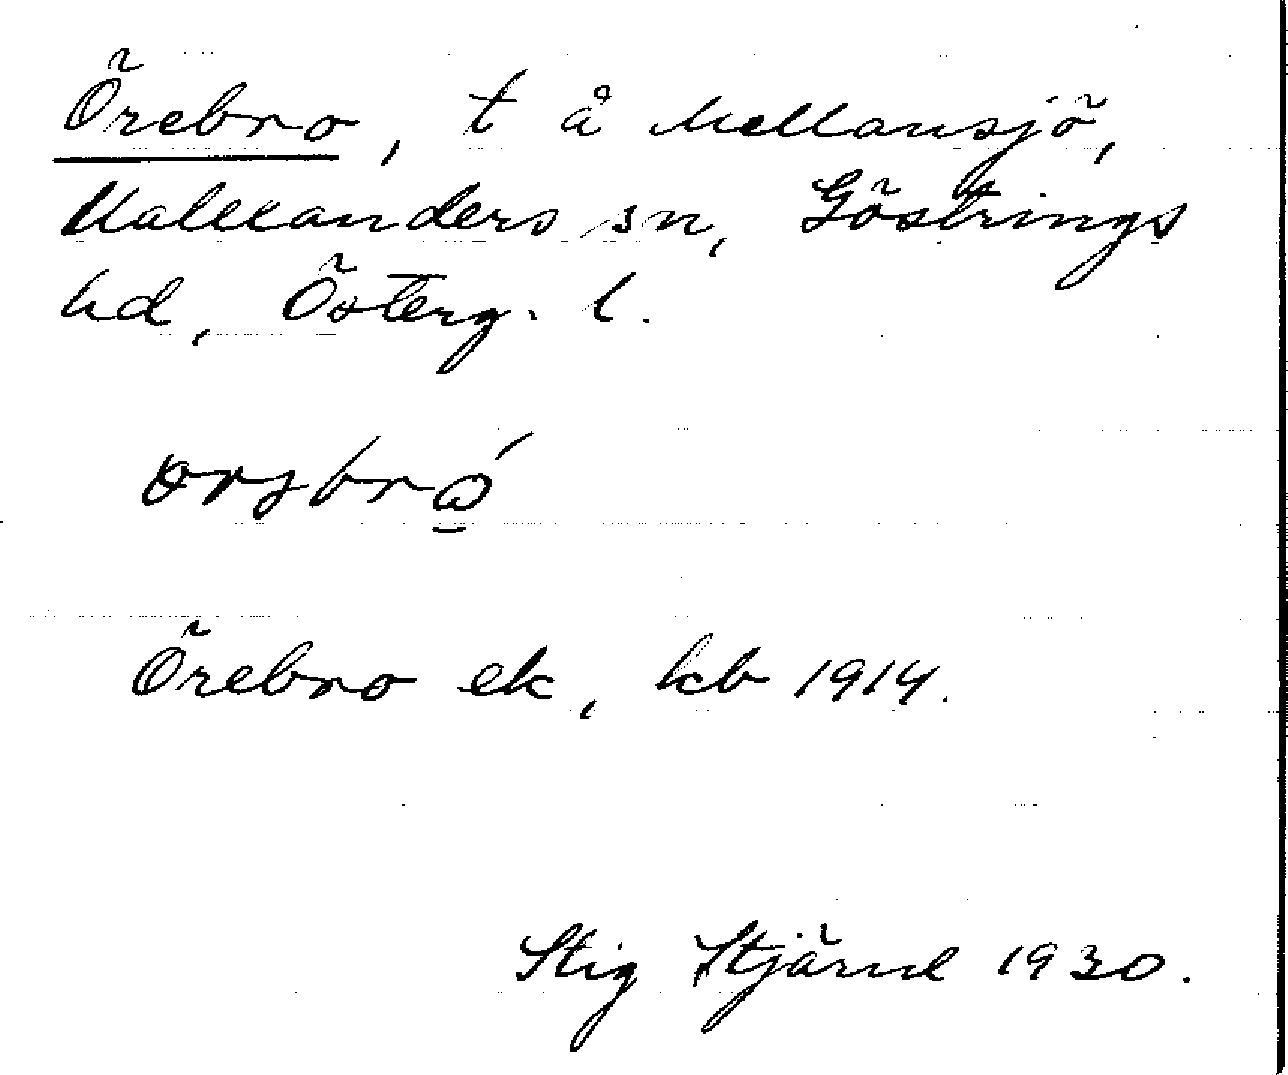 Örebro, t å Mellansjö,
Malexanders sn, Göstrings
hd, Österg. l.
Örebro ek, kb 1914.
Stig Stjärne 1930.